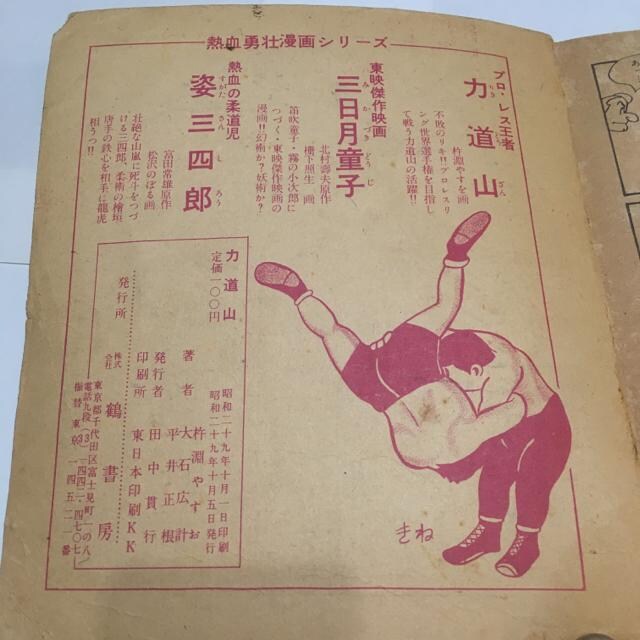 熱血勇壮漫画シリーズ
プロ・レス王者
力道山
りき
ざん
杵淵やすを画
不敗のリキ!!プロレスリ
ング世界選手権を目指し
て戦う力道山の活躍!!
東映傑作映画
三日月童子
みかづきどうじ
北村壽夫原作
棚下照生 画
笛吹童子・霧の小次郎に
つづく・東映傑作映画の
漫画!!幻術か?妖術か?
熱血の柔道児
姿三四郎
すがたさんしろう
富田常雄原作
松沢のぼる画
壮絶な山嵐に死斗をつづ
ける三四郎、柔術の檜垣
唐手の鉄心を相手に龍虎
相うつ!!
力道山
定価一〇〇円
昭和二十九年十月一日印刷
昭和二十九年十月五日発行
著者 杵淵やすお
大石広計
平井正根
発行者 田中貫行
印刷所 東日本印刷KK
発行所
株式会社 鶴書房
東京都千代田区富士見町一の八
電話九段(33)一四四一・四七〇七
振替東京一一四五二一番
きね